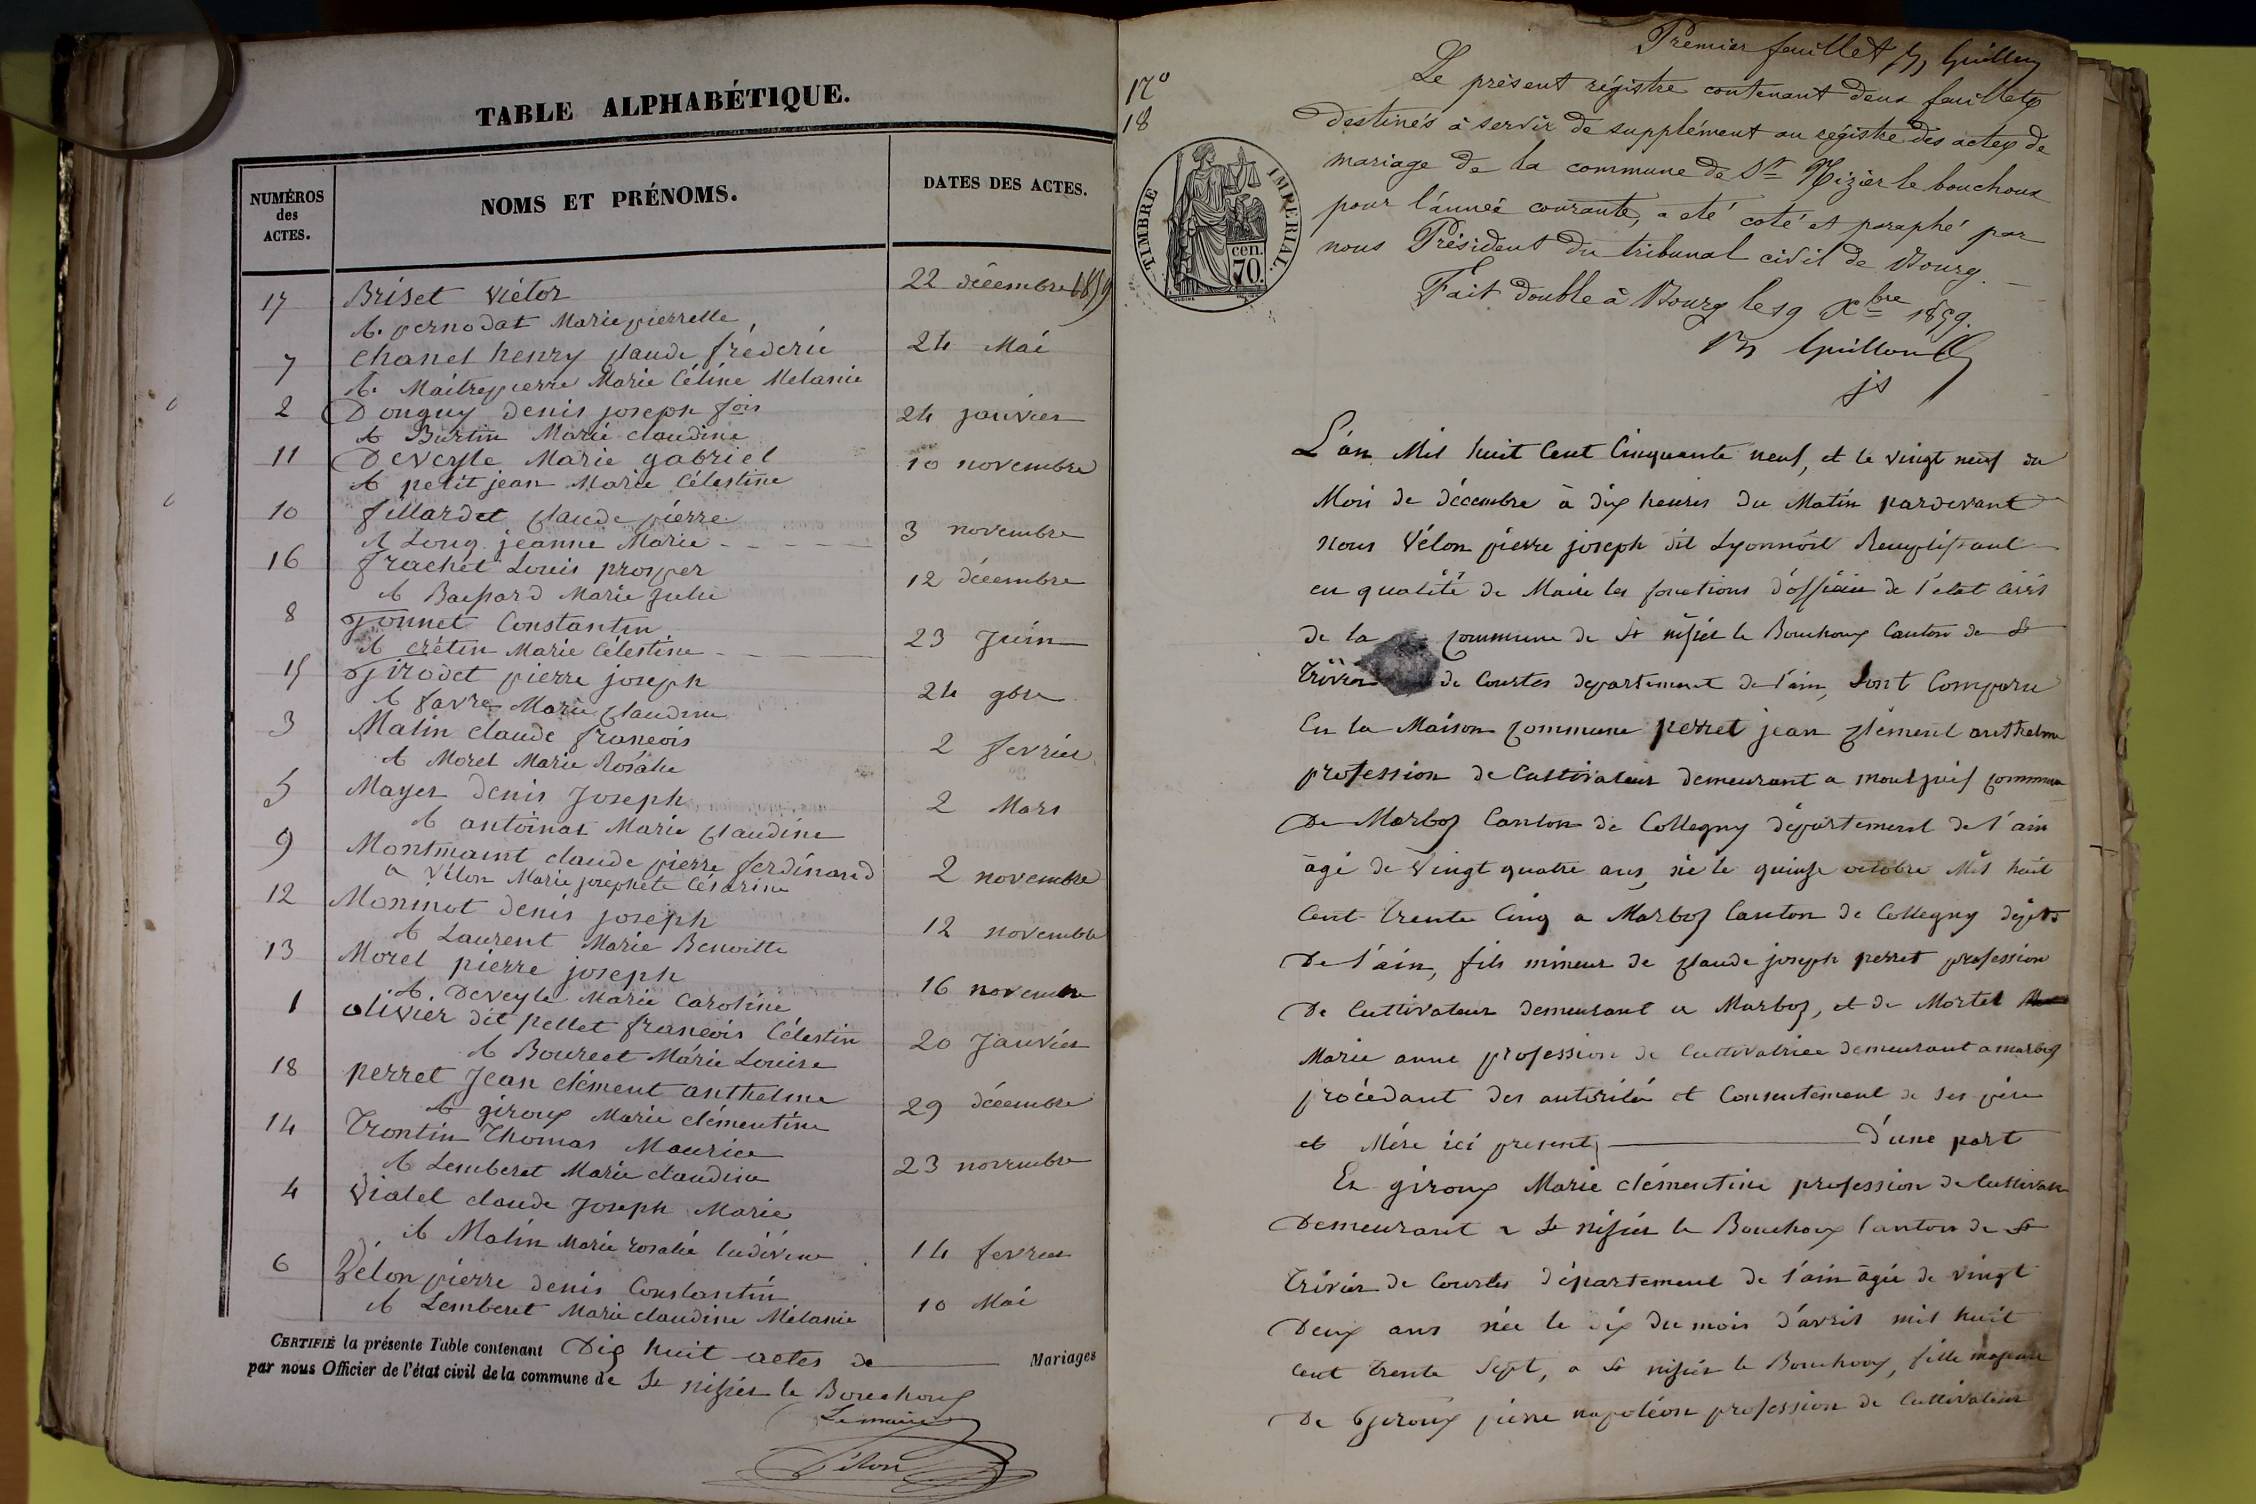 TABLE ALPHABÉTIQUE.
NUMÉROS des ACTES.
NOMS ET PRÉNOMS.
DATES DES ACTES.
17 Briset victor 22 décembre 1859
& pernodat Marie pierrette
7 Chanel henry claude fréderic 24 Mai
& Maitrepierre Marie Céline Melanie
2 Donguy denis joseph fois 24 janvier
& Burtin Marie claudine
11 Deveyle Marie gabriel 10 novembre
& petit jean Marie Célestine
10 fillardet claude pierre 3 novembre
& Long jeanne Marie
16 frachet Louis prosper 12 décembre
& Marie Julie
8 gonnet Constantin 23 Juin
& crétin Marie Célestine
15 girodet pierre joseph 24 9bre
& favre Marie claudine
3 Malin claude francois 2 fevrier
& Morel Marie Rosalie
5 Mayer denis Joseph 2 Mars
& antoinat Marie claudine
9 Montmaint claude pierre ferdinand 2 novembre
a Vélon Marie josephete Césarine
12 Moninot denis joseph 12 novembre
& Laurent Marie Benoitte
13 Morel pierre joseph 16 novembre
& Deveyle Marie Caroline
1 olivier dit pellet francois Célestin 20 Janvier
& Marie Louise
18 perret Jean clément anthelme 29 décembre
& giroux Marie clémentine
14 Trontin Thomas Maurice 23 novembre
& Lemberet Marie claudine
4 Vialel claude Joseph Marie 14 fevrier
& Malin Marie rosalie
6 Vélon pierre denis Constantin 10 Mai
& Lemberet Marie claudine Mélanie
CERTIFIÉ la présente Table contenant Dix huit actes de Mariages
par nous Officier de l'état civil de la commune de St nisier le Bouchoux
Le maire
Vélon
Premier feuillet Guillon
17°
18
Le présent régistre contenant deux feuillets
destinés à servir de supplément au registre des actes de
mariage de la commune de St Nizier le bouchoux
pour l'année courante, a été coté et paraphé par
nous Président du tribunal civil de Bourg.
Fait double à Bourg le 19 Xbre 1859.
Guillon
TIMBRE IMPERIAL
cen.
70.
L'an Mil huit Cent Cinquante neuf, et le vingt neuf du
Mois de décembre à dix heures du Matin pardevant
nous Vélon pierre joseph dit Lyonnais Remplissant
en qualité de Maire les fonctions d'officier de l'état civil
de la commune de St nisier le Bouchoux Canton de St
Trivier de Courtes departement de l'ain, Sont Comparu
En la Maison commune perret jean clément anthelme
profession de Cultivateur demeurant a commune
De Marboz Canton de Collegny département de l'ain
âgé de Vingt quatre ans, né le quinze octobre Mil huit
Cent Trente Cinq a Marboz Canton de Collegny dept
De l'ain, fils mineur de claude joseph perret profession
De Cultivateur demeurant a Marboz, et de Mortel
Marie anne profession de Cultivatrice demeurant a marboz
procédant des autorité et Consentement de ses père
et Mére ici present, d'une part
Et giroux Marie clémentine profession de
Demeurant a St nisier le Bouchoux Canton de St
Trivier de Courtes département de l'ain âgée de vingt
Deux ans née le dix du mois d'avril mil huit
Cent trente Sept, a St nisier le Bouchoux, fille majeure
De Giroux pierre napoléon profession de Cultivateur